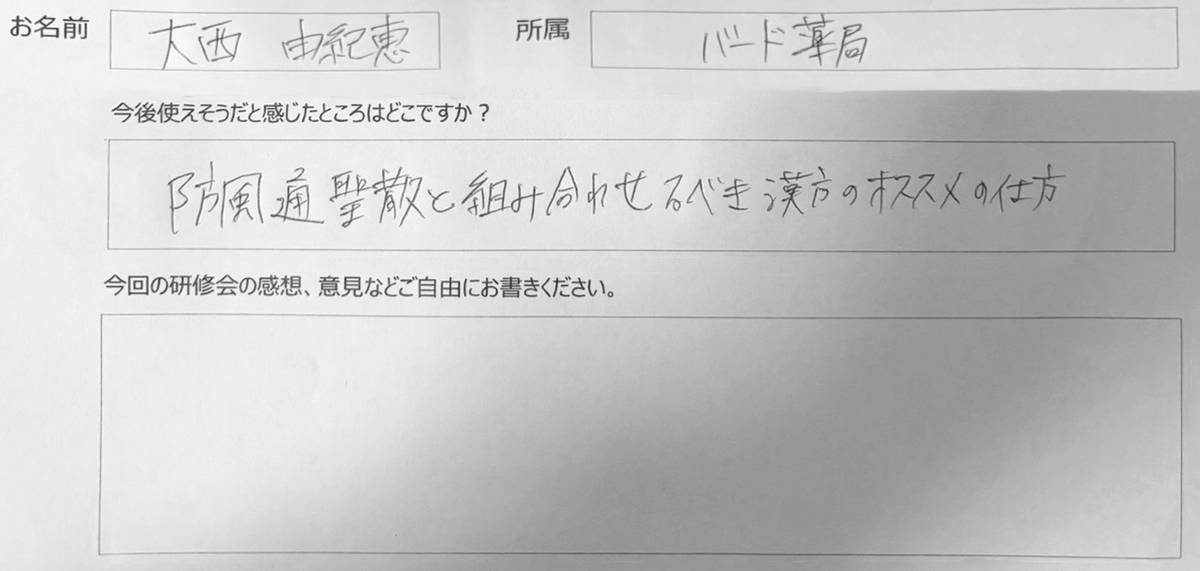 お名前 大西 由紀恵 所属 バード薬局
今後使えそうだと感じたところはどこですか？
防風通聖散と組み合わせるべき漢方のオススメの仕方
今回の研修会の感想、意見などご自由にお書きください。